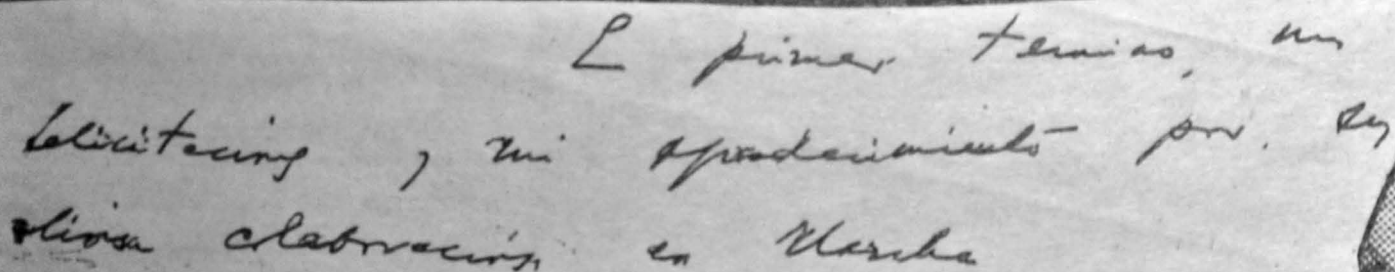 En primer termino, mis
felicitaciones y mi agradecimiento por su
valiosa colaboración en Marcha